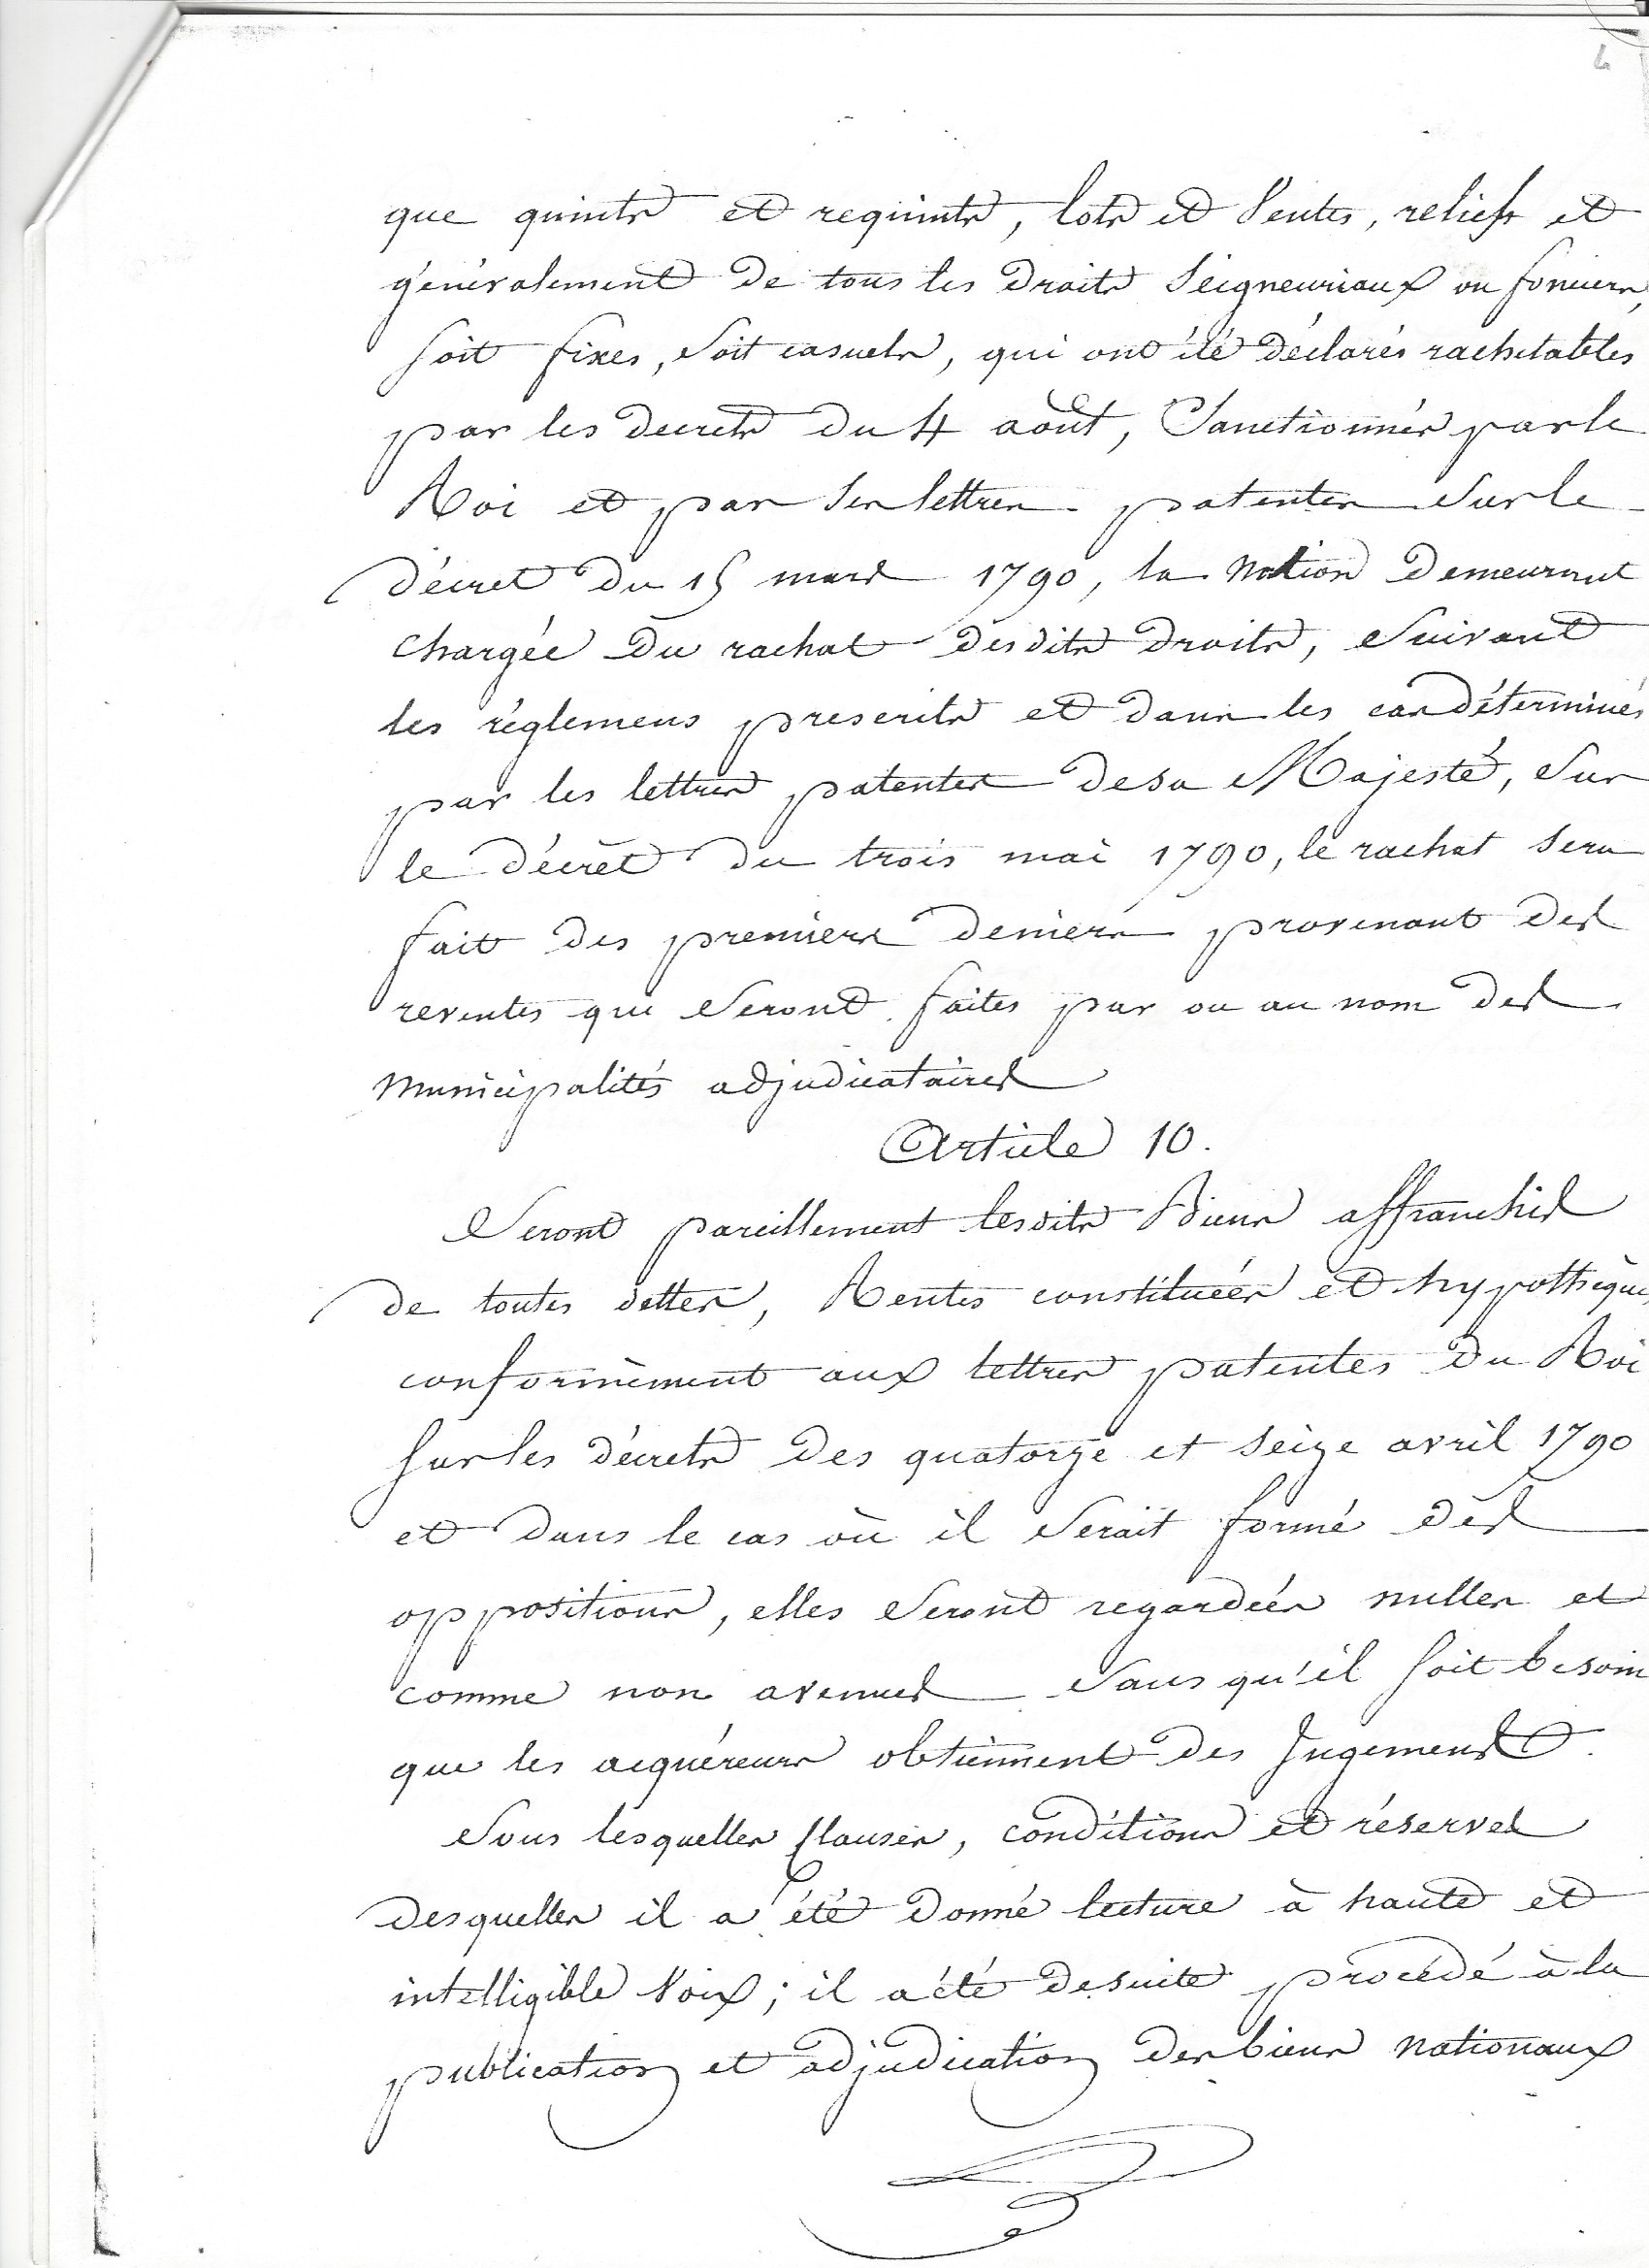 que quints et requints, lots et Ventes, reliefs et
généralement de tous les droits Seigneuriaux ou fonciers,
soit fixes, soit casuels, qui ont été déclarés rachetables
par les decrets du 4 août, Sanctionnés par le
Roi et par Ses lettres-patentes Sur le
décret du 15 mars 1790, la Nation demeurant
chargée du rachat desdits droits, Suivant
les réglemens prescrits et dans les cas déterminés
par les lettres patentes de sa Majesté, Sur
le décret du trois mai 1790, le rachat sera
fait des premiers deniers provenant des
reventes qui Seront faites par ou au nom des
Municipalités adjudicataires
Article 10.
Seront pareillement lesdits Biens affranchis
de toutes dettes, Rentes constituées et hypothèques
conformément aux lettres patentes du Roi
Sur les décrets des quatorze et seize avril 1790
et dans le cas où il Serait formé des
oppositions, elles Seront regardées nulles et
comme non avenues Sans qu'il soit besoin
que les acquéreurs obtiennent des Jugements.
Sous lesquelles Clauses, conditions et réserves
desquelles il a été donné lecture à haute et
intelligible Voix; il a été de suite procédé à la
publication et adjudication des biens Nationaux